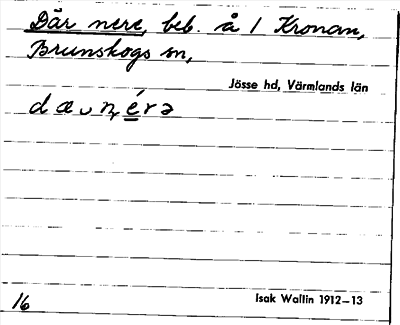 Där nere, beb. å 1 Kronan,
Brunskogs sn,
Jösse hd, Värmlands län
dæ ᴗ ń̥érə
16
Isak Wallin 1912–13